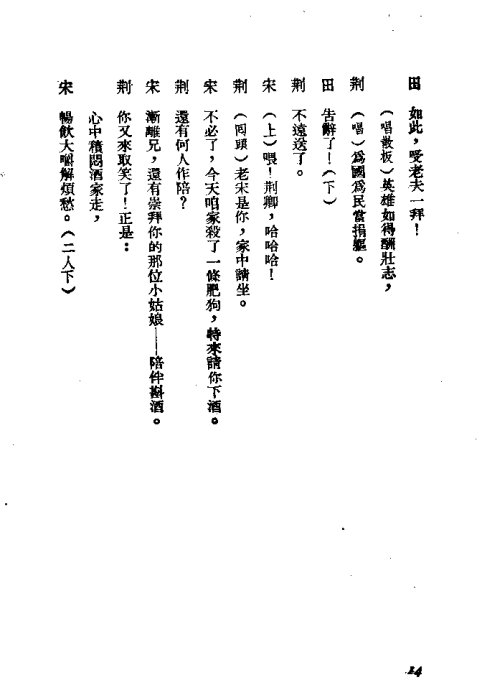 田　如此，受老夫一拜！
（唱散板）英雄如得酬壯志，
荆　（唱）爲國爲民當捐軀。
田　吿辭了！（下）
荆　不遠送了。
宋　（上）喂！荆卿，哈哈哈！
荆　（囘頭）老宋是你，家中請坐。
宋　不必了，今天咱家殺了一條肥狗，特來請你下酒。
荆　還有何人作陪？
宋　漸離兄，還有崇拜你的那位小姑娘——陪伴斟酒。
荆　你又來取笑了！正是：
心中積悶酒家走，
宋　暢飮大嚼解煩愁。（二人下）
24